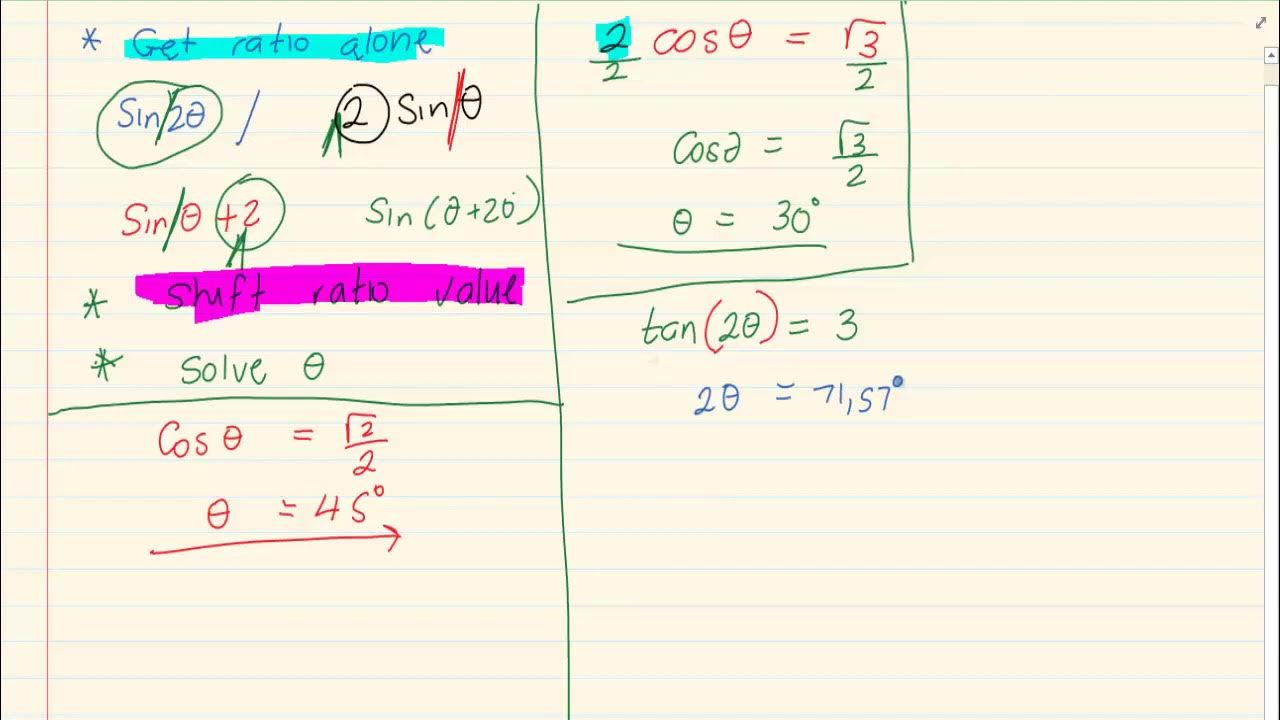 * Get ratio alone
Sin/2θ / 2 Sin/θ
Sin/θ +2 Sin(θ+20°)
* Shift ratio value
* Solve θ
Cos θ = √2/2
θ = 45°
2/2 cosθ = √3/2
Cos∂ = √3/2
θ = 30°
tan(2θ) = 3
2θ = 71,57°